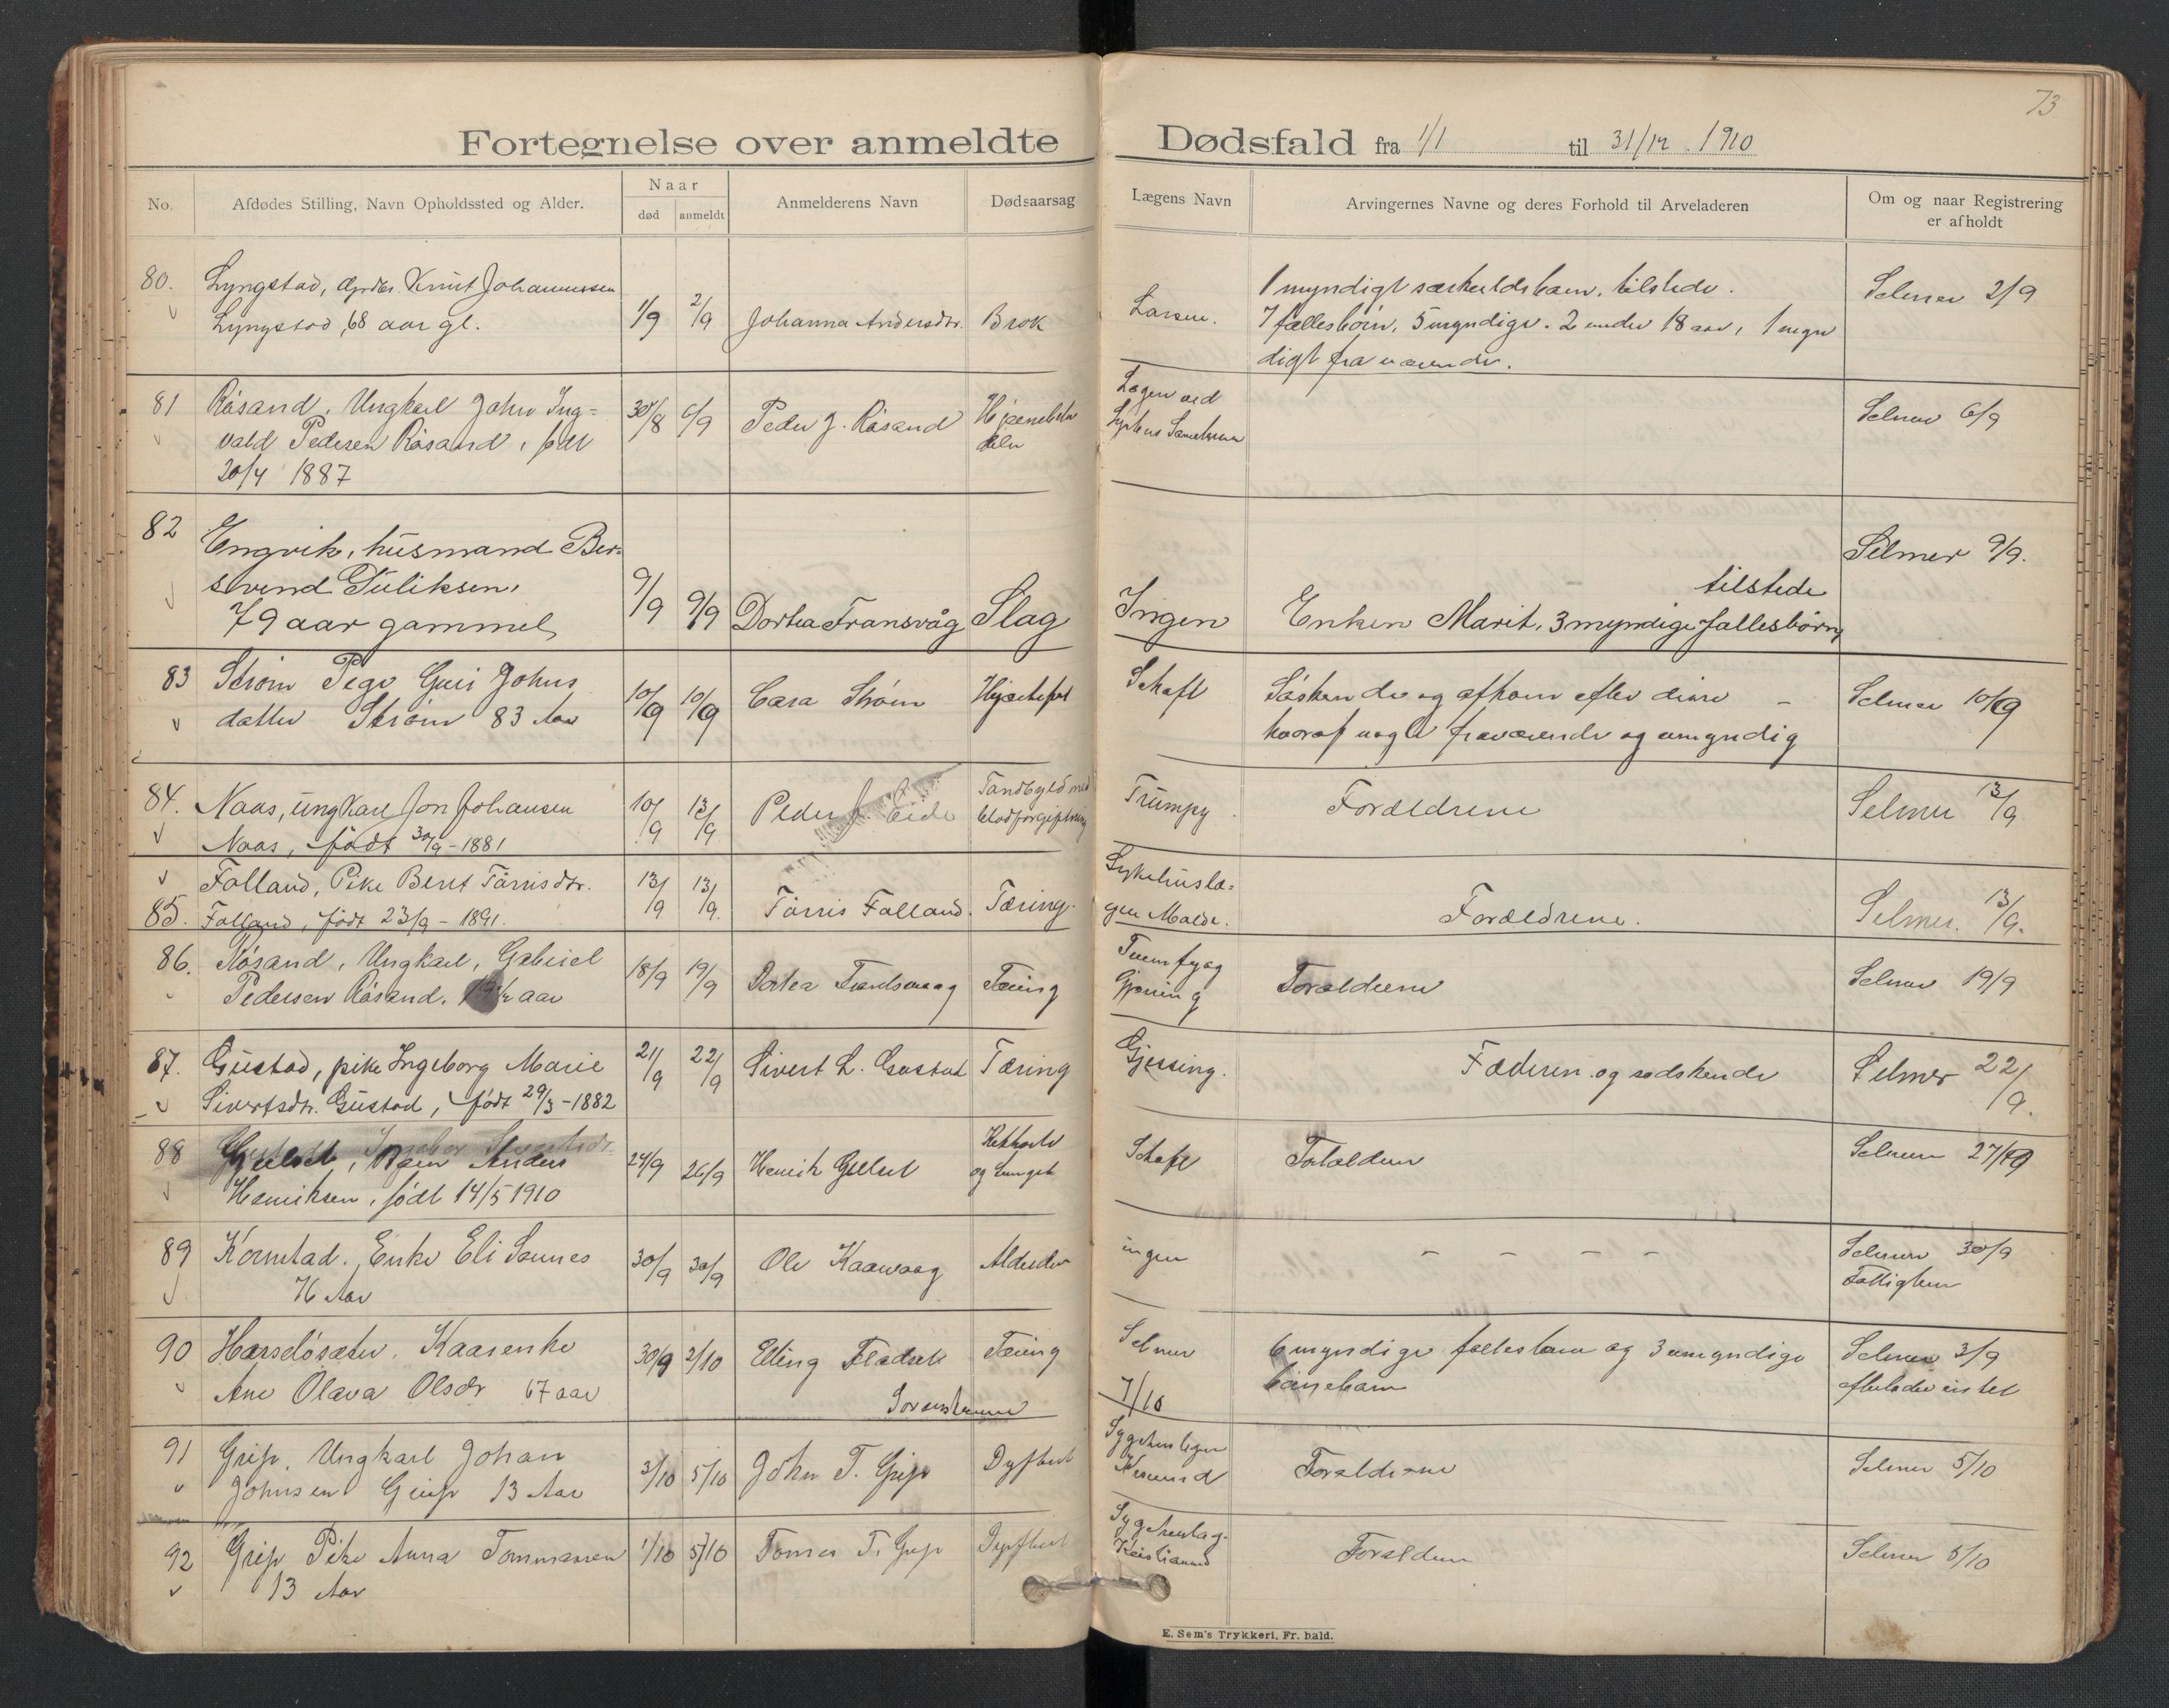 73
Fortegnelse over anmeldte Dødsfald fra 1/1 til 31/12 1910
No. Afdødes Stilling, Navn Opholdssted og Alder. Naar død anmeldt Anmelderens Navn Dødsaarsag Lægens Navn Arvingernes Navne og deres Forhold til Arveladeren Om og naar Registrering er afholdt
80. Lyngstad, Knut Johannessen
Lyngstad, 68 aar gl. 1/9 2/9 Johanna Andersdtr. Brok Larsen.
1 myndigt særkuldsbarn, tilstede.
7 fællesbørn, 5 myndige. 2 under 18 aar, 1 myn
digt fraværende.
Selmer 2/9
81 Råsand, Ungkarl John Ing=
vald Pedersen Råsand, født
20/4 1887
30/8 6/9 Peder J. Råsand
Lægen ved
Selmer 6/9
82 Engvik, husmand Ber=
svend Tuliksen,
79 aar gammel,
9/9 9/9 Dortea Fransvåg Slag Ingen
tilstede
Enken Marit, 3 myndige fallesbørn
Selmer 9/9.
83 Strøm Pige Guri Johns
datter Strøm 83 Aar
10/9 10/9 Cara Strøm Hjertefeil Schaft
Søskende og afkom efter disse –
hvoraf nogle fraværende og umyndig
Selmer 10/9
84. Naas, ungkarl Jon Johansen
Naas, født 30/9 - 1881
10/9 13/9 Peder J. Eide
Tandbyld med
blodforgiftning
Trumpy Forældrene Selmer 13/9
Folland, Pike Berit Tørrisdtr.
85. Folland, født 23/9 - 1891.
13/9 13/9. Tørris Folland. Tæring.
Sykehuslæ=
gen Molde.
Forældrene. Selmer. 13/9.
86. Råsand, Ungkarl, Gabriel
Pedersen Råsand, aar
18/9 19/9 Dortea Tæring
Forældrene Selmer 19/9
87. Gustad, pike Ingeborg Marie
Sivertsdtr. Gustad, født 29/3 - 1882
21/9 22/9 Sivert L. Gustad Tæring Gjessing.
Faderen og sødskende Selmer 22/9.
88 Barn Anders
Henriksen, født 14/5 1910
24/9 26/9 Henrik
Schaft Forældrene Selmer 27/9
89 Kornstad. Enke Eli Sannes
76 Aar
30/9 30/9 Ole Kaarvaag Alderdom ingen – – – –
Selmer 30/9
Fattiglem
90 Hårsløsæter. Kaarenke
Ane Olava Olsdr 67 aar
30/9 2/10 Elling Tæring
Selmer
7/10
6 myndige fællesbarn og 3 umyndige
børnebarn
Selmer 3/9
91 Grip, Ungkarl Johan
Johnsen Grip 13 Aar
3/10 5/10 John T. Grip
Forældrene Selmer 5/10
92 Grip Pike Anna Tommassen
13 Aar
1/10 5/10 Tomas T. Grip
Kristiansund
Forældrene Selmer 5/10
E. Sem's Trykkeri, Fr. hald.